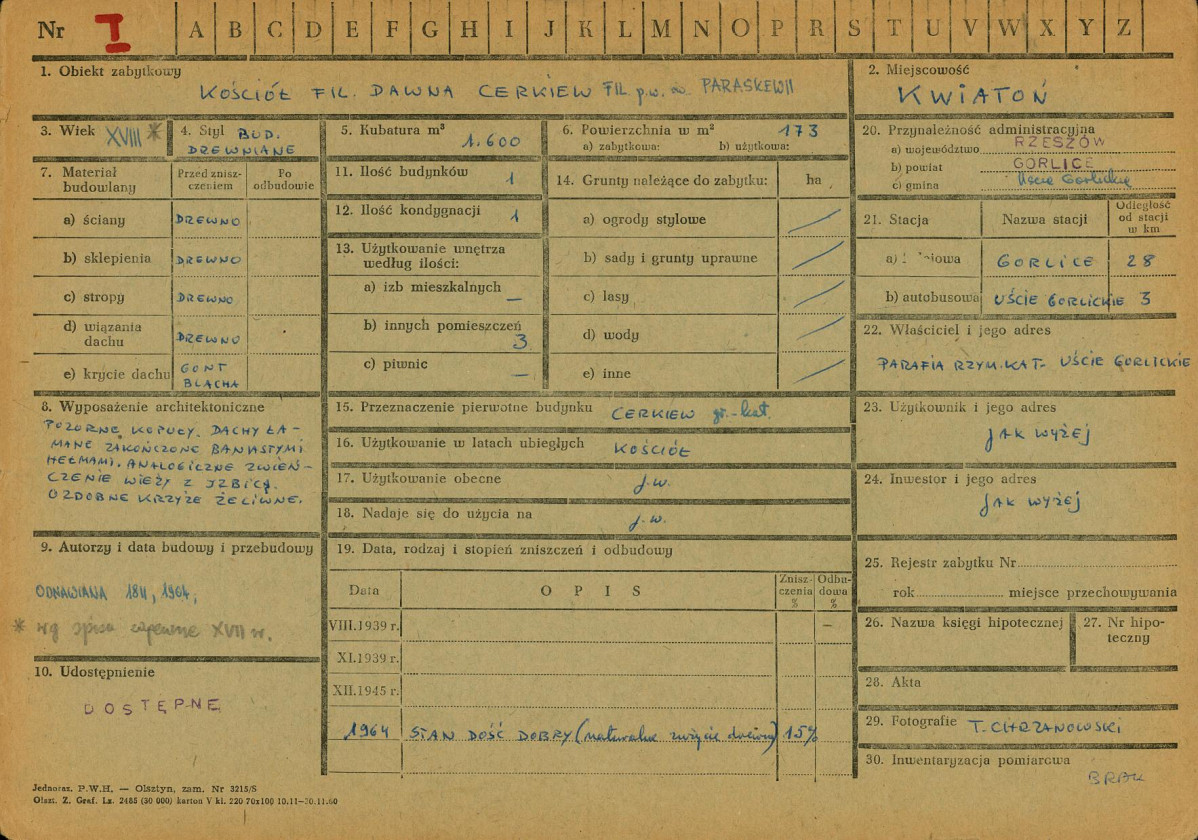 Nr I A B C D E F G H I J K L M N O P R S T U V W X Y Z
1. Obiekt zabytkowy
KOŚCIÓŁ FIL. DAWNA CERKIEW FIL p.w. św. PARASKEWII
2. Miejscowość
KWIATOŃ
3. Wiek XVIII *
4. Styl BUD.
DREWNIANE
5. Kubatura m³
1.600
6. Powierzchnia w m² 173
a) zabytkowa: b) użytkowa:
20. Przynależność administracyjna
a) województwo RZESZÓW
b) powiat GORLICE
c) gmina Uście Gorlickie
7. Materiał
budowlany
Przed znisz-
czeniem
Po
odbudowie
a) ściany DREWNO
b) sklepienia DREWNO
c) stropy DREWNO
d) wiązania
dachu DREWNO
e) krycie dachu GONT
BLACHA
11. Ilość budynków 1
12. Ilość kondygnacji 1
13. Użytkowanie wnętrza
według ilości:
a) izb mieszkalnych —
b) innych pomieszczeń
3
c) piwnic —
14. Grunty należące do zabytku: ha
a) ogrody stylowe
b) sady i grunty uprawne
c) lasy
d) wody
e) inne
21. Stacja Nazwa stacji
Odległość
od stacji
w km
a) GORLICE 28
b) autobusowa UŚCIE GORLICKIE 3
22. Właściciel i jego adres
PARAFIA RZYM.KAT- UŚCIE GORLICKIE
8. Wyposażenie architektoniczne
POZORNE KOPUŁY. DACHY ŁA-
MANE ZAKOŃCZONE BANIASTYMI
HEŁMAMI. ANALOGICZNE ZWIEŃ-
CZENIE WIEŻY Z IZBICĄ.
OZDOBNE KRZYŻE ŻELIWNE.
15. Przeznaczenie pierwotne budynku CERKIEW gr.-kat.
16. Użytkowanie w latach ubiegłych KOŚCIÓŁ
17. Użytkowanie obecne j.w.
18. Nadaje się do użycia na j.w.
23. Użytkownik i jego adres
JAK WYŻEJ
24. Inwestor i jego adres
JAK WYŻEJ
9. Autorzy i data budowy i przebudowy
ODNAWIANA 1811, 1904,
* wg spisu zapewne XVII w.
10. Udostępnienie
DOSTĘPNE
19. Data, rodzaj i stopień zniszczeń i odbudowy
Data OPIS
Znisz-
czenia
%
Odbu-
dowa
%
VIII.1939 r. —
XI.1939 r.
XII.1945 r.
1964 STAN DOŚĆ DOBRY (naturalne zużycie drewna) 15%
25. Rejestr zabytku Nr
rok miejsce przechowywania
26. Nazwa księgi hipotecznej
27. Nr hipo-
teczny
28. Akta
29. Fotografie T. CHRZANOWSKI
30. Inwentaryzacja pomiarowa
Jednoraz. P.W.H. — Olsztyn, zam. Nr 3215/S
Olszt. Z. Graf. Lz. 2485 (30 000) karton V kl. 220 70x100 10.11—30.11.60